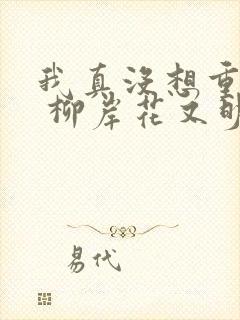 我真没想重
柳岸花又明
易代